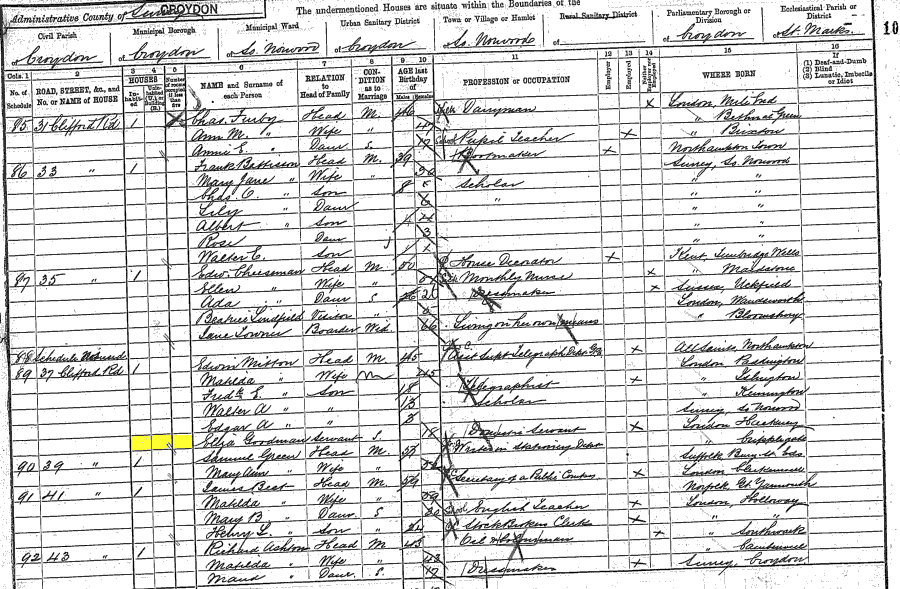 Administrative County of Surrey CROYDON The undermentioned Houses are situate within the Boundaries of the
Civil Parish Municipal Borough Municipal Ward Urban Sanitary District Town or Village or Hamlet Rural Sanitary District Parliamentary Borough or Division Ecclesiastical Parish or District
of Croydon of Croydon of So. Norwood of Croydon of So. Norwood of of Croydon of St. Marks 10
Cols. 1 2 3 4 5 6 7 8 9 10 11 12 13 14 15 16
No. of Schedule ROAD, STREET, &c., and No. or NAME of HOUSE HOUSES In-habited NAME and Surname of each Person RELATION to Head of Family CON-DITION as to Marriage AGE last Birthday of Males Females PROFESSION or OCCUPATION Employer Employed Neither WHERE BORN If (1) Deaf-and-Dumb (2) Blind (3) Lunatic, Imbecile or Idiot
85 31 Clifford Rd 1 Chas. Furby Head M. 46 Dairyman x London, Mile End
Ann M. " Wife " 47 " Bethnal Green
Annie E. " Daur S. 17 Pupil Teacher x " Brixton
86 33 " 1 Frank Bettison Head M. 39 Bootmaker x Northampton Town
Mary Jane " Wife " 36 Surrey, So. Norwood
Chas. C. " Son 8 Scholar " "
Lily " Daur 6 " " "
Albert " Son 4 " "
Rose Daur 3 " "
Walter E. Son 1 " "
87 35 " 1 Edwd Cheeseman Head M. 50 House Decorator x Kent, Tunbridge Wells
Ellen " Wife " Monthly Nurse x " Maidstone
Ada " Daur S 26 Dressmaker x Sussex, Uckfield
Beatrice Lindfield Visitor " London, Wandsworth
Jane Towner Boarder Wid. 66 Living on her own means " Bloomsbury
88 Schedule
89 37 Clifford Rd 1 Edwin Mitton Head M 45 Asst Supt Telegraph Dept x All Saints, Northampton
Matilda " Wife M 45 London Paddington
Fredk E. " Son 18 Telegraphist x " Islington
Walter A " " 13 Scholar " Kennington
Edgar A " " 3 Surrey So Norwood
Ellia Goodman Servant S. 18 Domestic Servant x London Hackney
90 39 " 1 Samuel Green Head M. 55 Writer in Stationery Dept " Cripplegate
Mary Ann " Wife " Suffolk Bury St. Eds
91 41 " 1 James Best Head M. 59 Secretary of a Public Company x London Clerkenwell
Matilda " Wife " 59 Norfolk Gt. Yarmouth
Mary B " Daur S 30 English Teacher x London, Holloway
Henry L. " Son " 24 Stock Brokers Clerk x " "
92 43 " 1 Richard Ashton Head M 43 Oil & x " Southwark
Matilda " Wife " 43 " Camberwell
Maud " Daur S. 17 Dressmaker x Surrey, Croydon